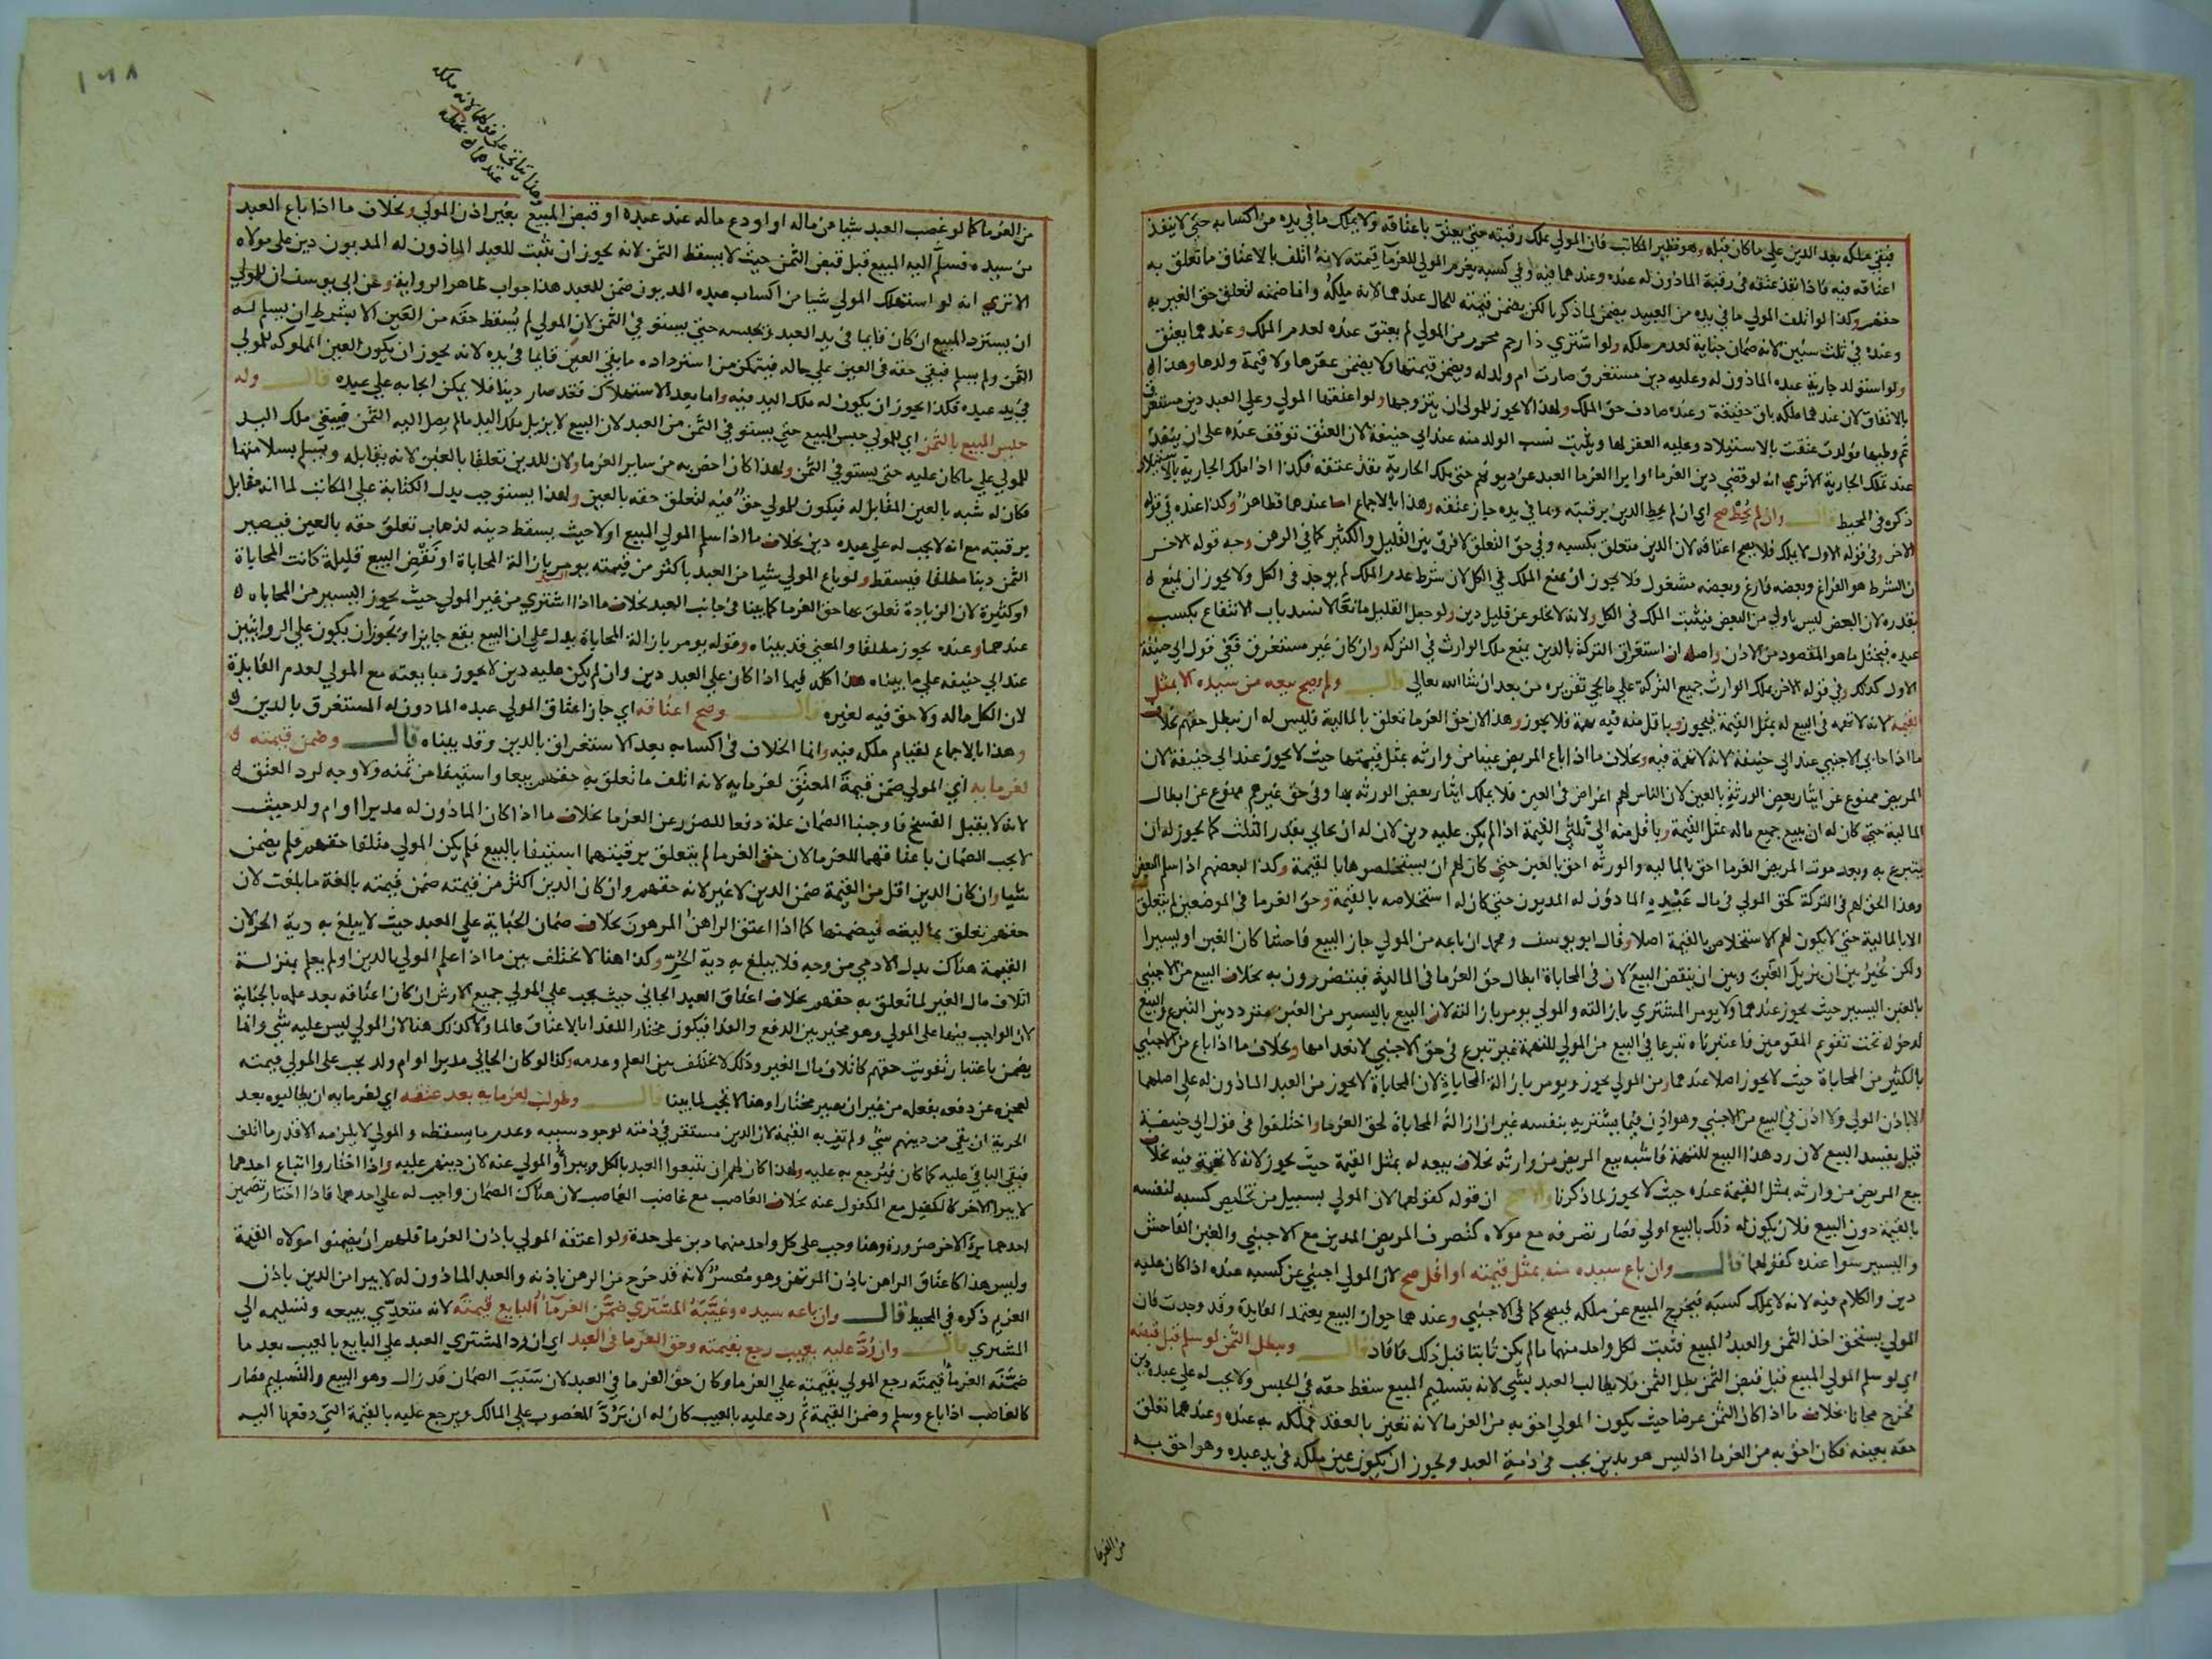 فبقي ملكه بعد الدين علي ما كان قبله وهو نظير المكاتب فان المولي يملك رقبته حتي يعتق باعتاقه ولا يملك ما في يده من اكسابه حتي لا ينفذ
اعتاقه فيه فاذا نفذ عتقه في رقبة الماذون له عنده وعندهما فيه وفي كسبه يغرم المولي للغرما قيمته لانه اتلف بالاعتاق ما تعلق به
حقهم وكذا لو اتلف المولي ما في يده من العبيد يضمن لما ذكرنا لكن يضمن قيمته للحال عندهما لانه ملكه وانما ضمنه لتعلق حق الغير به
وعنده في ثلث سنين لانه ضمان جناية لعدم ملكه ولو اشتري ذا رحم محرم من المولي لم يعتق عنده لعدم الملك وعندهما يعتق
ولو استولد جارية عبده الماذون له وعليه دين مستغرق صارت ام ولد له ويضمن قيمتها ولا يضمن عقرها ولا قيمة ولدها وهذا
بالاتفاق لان عندهما ملكه باق حقيقة وعنده صادف حق الملك ولهذا لا يجوز للمولي ان يتزوجها ولو اعتقها المولي وعلي العبد دين مستغرق
ثم وطيها فولدت عتقت بالاستيلاد وعليه العقر لها ويثبت نسب الولد منه عند ابي حنيفة لان العتق توقف عنده علي ان ينفذ
عند تملك الجارية الا تري انه لو قضي دين الغرما او ابرا الغرما العبد عن ديونهم حتي ملك الجارية نفذ عتقه فكذا اذا ملك الجارية بالاستيلاد
ذكره في المحيط قال وان لم يحط صح اي ان لم يحط الدين برقبته وبما في يده جاز عتقه وهذا بالاجماع اما عندهما فظاهر وكذا عنده في قوله
الاخر وفي قوله الاول لا يملك فلا يصح اعتاقه لان الدين متعلق بكسبه وفي حق التعلق لا فرق بين القليل والكثير كما في الرهن وجه قوله الاخر
ان الشرط هو الفراغ وبعضه فارغ وبعضه مشغول فلا يجوز ان يمنع الملك في الكل لان شرط عدم الملك لم يوجد في الكل ولا يجوز ان يمنع
بقدره لان البعض ليس باولي من البعض فيثبت الملك في الكل ولانه لا يخلو عن قليل دين ولو جعل القليل مانعا لانسد باب الانتفاع بكسب
عبده فيختل ما هو المقصود من الاذن واصله ان استغراق التركة بالدين يمنع ملك الوارث في التركة وان كان غير مستغرق ففي قول ابي حنيفة
الاول كذلك وفي قوله الاخر يملك الوارث جميع التركة علي ما يجي تقريره من بعد ان شا الله تعالي قال ولم يصح بيعه من سيده الا بمثل
القيمة لانه لا تهمة في البيع له بمثل القيمة فيجوز وباقل منه فيه تهمة فلا يجوز وهذا لان حق الغرما تعلق بالمالية فليس له ان يبطل حقهم بخلاف
ما اذا حابي الاجنبي عند ابي حنيفة لانه لا تهمة فيه وبخلاف ما اذا باع المريض عينا من وارثه بمثل قيمتها حيث لا يجوز عند ابي حنيفة لان
المريض ممنوع عن ايثار بعض الورثة بالعين لان الناس لهم اغراض في العين فلا يملك ايثار بعض الورثة بها وفي حق غيرهم ممنوع عن ابطال
المالية حتي كان له ان يبيع جميع ماله بمثل القيمة وباقل منه الي ثلثي القيمة اذا لم يكن عليه دين لان له ان يحابي بقدر الثلث كما يجوز له ان
يتبرع به وبعد موت المريض الغرما احق بالمالية والورثة احق بالعين حتي كان لهم ان يستخلصوها بالقيمة وكذا لبعضهم اذا اسلم البعض
وهذا الحق لهم في التركة كحق المولي في مال عبيده الماذون له المديون حتي كان له استخلاصه بالقيمة وحق الغرما في الموضعين لم يتعلق
الا بالمالية حتي لا يكون لهم الاستخلاص بالقيمة اصلا وقال ابو يوسف ومحمد ان باعه من المولي جاز البيع فاحشا كان الغبن او يسيرا
ولكن يخير بين ان يزيل الغبن وبين ان ينقض البيع لان في المحاباة ابطال حق الغرما في المالية فيتضررون به بخلاف البيع من الاجنبي
بالغبن اليسير حيث يجوز عندهما ولا يومر المشتري بازالته والمولي يومر بازالته لان البيع باليسير من الغبن متردد بين التبرع والبيع
لدخوله تحت تقويم المقومين فاعتبرناه تبرعا في البيع من المولي للتهمة غير تبرع في حق الاجنبي لانعدامها وبخلاف ما اذا باع من الاجنبي
بالكثير من المحاباة حيث لا يجوز اصلا عندهما ومن المولي يجوز ويومر بازالة المحاباة لان المحاباة لا يجوز من العبد الماذون له علي اصلهما
الا باذن المولي ولا اذن في البيع من الاجنبي وهو اذن فيما يشتريه بنفسه غير ان ازالة المحاباة لحق الغرما واختلفوا في قول ابي حنيفة
قيل يفسد البيع لان رد هذا البيع للتهمة فاشبه بيع المريض من وارثه بخلاف بيعه له بمثل القيمة حيث يجوز لانه لا تهمة فيه بخلاف
بيع المريض من وارثه بمثل القيمة عنده حيث لا يجوز لما ذكرنا والاصح ان قوله كقولهما لان المولي بسبيل من تخليص كسبه لنفسه
بالقيمة دون البيع فلان يكون له ذلك بالبيع اولي فصار تصرفه مع مولاه كتصرف المريض المدين مع الاجنبي والغبن الفاحش
واليسير سوا عنده كقولهما قال وان باع سيده منه بمثل قيمته او اقل صح لان المولي اجنبي عن كسبه عنده اذا كان عليه
دين والكلام فيه لانه لا يملك كسبه فيخرج المبيع عن ملكه فيصح كما في الاجنبي وعندهما جواز البيع يعتمد الفايدة وقد وجدت فان
المولي يستحق اخذ الثمن والعبد المبيع فثبت لكل واحد منهما ما لم يكن ثابتا قبل ذلك فافاد قال ويبطل الثمن لو سلم قبل قبضه
اي لو سلم المولي المبيع قبل قبض الثمن بطل الثمن فلا يطالب العبد بشي لانه بتسليم المبيع سقط حقه في الحبس ولا يجب له علي عبده دين
فخرج مجانا بخلاف ما اذا كان الثمن عرضا حيث يكون المولي احق به من الغرما لانه تعين بالعقد فملكه به عنده وعندهما تعلق
حقه بعينه فكان احق به من الغرما اذ ليس هو بدين يجب في ذمة العبد ويجوز ان يكون عين ملكه في يد عبده وهو احق به
من الغرما
١٦٨
من الغرما كما لو غصب العبد شيا من ماله او اودع ماله عند عبده او قبض المبيع بغير اذن المولي وبخلاف ما اذا باع العبد
من سيده فسلم اليه المبيع قبل قبض الثمن حيث لا يسقط الثمن لانه يجوز ان يثبت للعبد الماذون له المديون دين علي مولاه
الا تري انه لو استهلك المولي شيا من اكساب عبده المديون ضمن للعبد هذا جواب ظاهر الرواية وعن ابي يوسف ان للمولي
ان يسترد المبيع ان كان قايما في يد العبد ويحبسه حتي يستوفي الثمن لان المولي لم يسقط حقه من العين الا بشرط ان يسلم له
الثمن ولم يسلم فبقي حقه في العين علي حاله فيتمكن من استرداده ما بقي العين قايما في يده لانه يجوز ان يكون العين المملوكه للمولي
في يد عبده فكذا يجوز ان يكون له ملك اليد فيه واما بعد الاستهلاك فقد صار دينا فلا يمكن ايجابه علي عبده قال وله
حبس المبيع بالثمن اي للمولي حبس المبيع حتي يستوفي الثمن من العبد لان البيع لا يزيل ملك اليد مالم يصل اليه الثمن فيبقي ملك اليد
للمولي علي ما كان عليه حتي يستوفي الثمن ولهذا كان احق به من ساير الغرما ولان للدين تعلقا بالعين لانه يقابله ويسلم بسلامتها
فكان له شبه بالعين المقابل له فيكون للمولي حق فيه لتعلق حقه بالعين ولهذا يستوجب بدل الكتابة علي المكاتب لما انه مقابل
برقبته مع انه لا يجب له علي عبده دين بخلاف ما اذا سلم المولي المبيع اولا حيث يسقط دينه لذهاب تعلق حقه بالعين فيصير
الثمن دينا مطلقا فيسقط ولو باع المولي شيا من العبد باكثر من قيمته يومر بازالة المحاباة او نقض البيع قليلة كانت المحاباة
او كثيرة لان الزيادة تعلق بها حق الغرما كما بينا في جانب العبد بخلاف ما اذا اشتري من غير المولي حيث يجوز اليسير من المحاباة
عندهما وعنده يجوز مطلقا والمعني قد بيناه وقوله يومر بازالة المحاباة يدل علي ان البيع يقع جايزا ويجوز ان يكون علي الروايتين
عند ابي حنيفه علي ما بيناه هذا كله فيما اذا كان علي العبد دين وان لم يكن عليه دين لا يجوز مبايعته مع المولي لعدم الفايدة
لان الكل ماله ولا حق فيه لغيره قال وصح اعتاقه اي جاز اعتاق المولي عبده الماذون له المستغرق بالدين
وهذا بالاجماع لقيام ملكه فيه وانما الخلاف في اكسابه بعد الاستغراق بالدين وقد بيناه قال وضمن قيمته
لغرمايه اي المولي ضمن قيمة المعتق لغرمايه لانه اتلف ما تعلق به حقهم بيعا واستيفا من ثمنه ولا وجه لرد العتق
لانه لا يقبل الفسخ فاوجبنا الضمان عليه دفعا للضرر عن الغرما بخلاف ما اذا كان الماذون له مدبرا او ام ولد حيث
لا يجب الضمان باعتاقهما للغرما لان حق الغرما لم يتعلق برقبتهما استيفا بالبيع فلم يكن المولي متلفا حقهم فلم يضمن
شيا وان كان الدين اقل من القيمة ضمن الدين لا غير لانه حقهم وان كان الدين اكثر من قيمته ضمن قيمته بالغة ما بلغت لان
حقهم تعلق بماليته فيضمنها كما اذا اعتق الراهن المرهون بخلاف ضمان الجناية علي العبد حيث لا يبلغ به دية الحر لان
القيمة هناك بدل الادمي من وجه فلا يبلغ به دية الحر وكذا هنا لا يختلف بين ما اذا علم المولي بالدين او لم يعلم بمنزلة
اتلاف مال الغير لما تعلق به حقهم بخلاف اعتاق العبد الجاني حيث يجب علي المولي جميع الارش ان كان اعتاقه بعد علمه بالجناية
لان الواجب فيها علي المولي وهو مخير بين الدفع والفدا فيكون مختارا للفدا بالاعتاق عالما ولا كذلك هنا لان المولي ليس عليه شي وانما
يضمن باعتبار تفويت حقهم كاتلاف مال الغير وذلك لا يختلف بين العلم وعدمه وكذا لو كان الجاني مدبرا او ام ولد يجب علي المولي قيمته
لعجزه عن دفعه بفعله من غير ان يصير مختارا وهنا لا يجب لما بينا قال وطولب لغرمايه بعد عتقه اي لغرمايه ان يطالبوه بعد
الحرية ان بقي من دينهم شي ولم تف به القيمة لان الدين مستقر في ذمته لوجود سببه وعدم ما يسقطه والمولي لا يلزمه الا قدر ما اتلف
فبقي الباقي عليه كما كان فيرجع به عليه ولهذا كان لهم ان يتبعوا العبد بالكل ويبرأ المولي عنه لان دينهم عليه واذا اختاروا اتباع احدهما
لا يبرا الاخر كالكفيل مع المكفول عنه بخلاف الغاصب مع غاصب الغاصب لان هناك الضمان واجب له علي احدهما فاذا اختار تضمين
احدهما برئ الاخر ضرورة وهنا وجب علي كل واحد منهما دين علي حدة ولو اعتقه المولي باذن الغرما فلهم ان يضمنوا مولاه القيمة
وليس هذا كاعتاق الراهن باذن المرتهن وهو معسر لانه قد خرج من الرهن باذنه والعبد الماذون له لا يبرا من الدين باذن
الغريم ذكره في المحيط قال وان باعه سيده وغيبه المشتري ضمن الغرما البايع قيمته لانه متعدي ببيعه وتسليمه الي
المشتري قال وان رد عليه بعيب رجع بقيمته وحق الغرما في العبد اي ان رد المشتري العبد علي البايع بالعيب بعد ما
ضمنه الغرما قيمته رجع المولي بقيمته علي الغرما وكان حق الغرما في العبد لان سبب الضمان قد زال وهو البيع والتسليم فصار
كالغاصب اذا باع وسلم وضمن القيمة ثم رد عليه بالعيب كان له ان يرد المغصوب علي المالك ويرجع عليه بالقيمة التي دفعها اليه